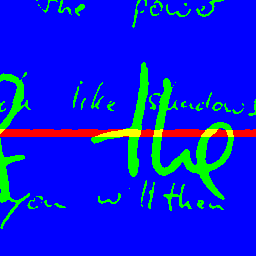 the power
like shadows
the
you will then